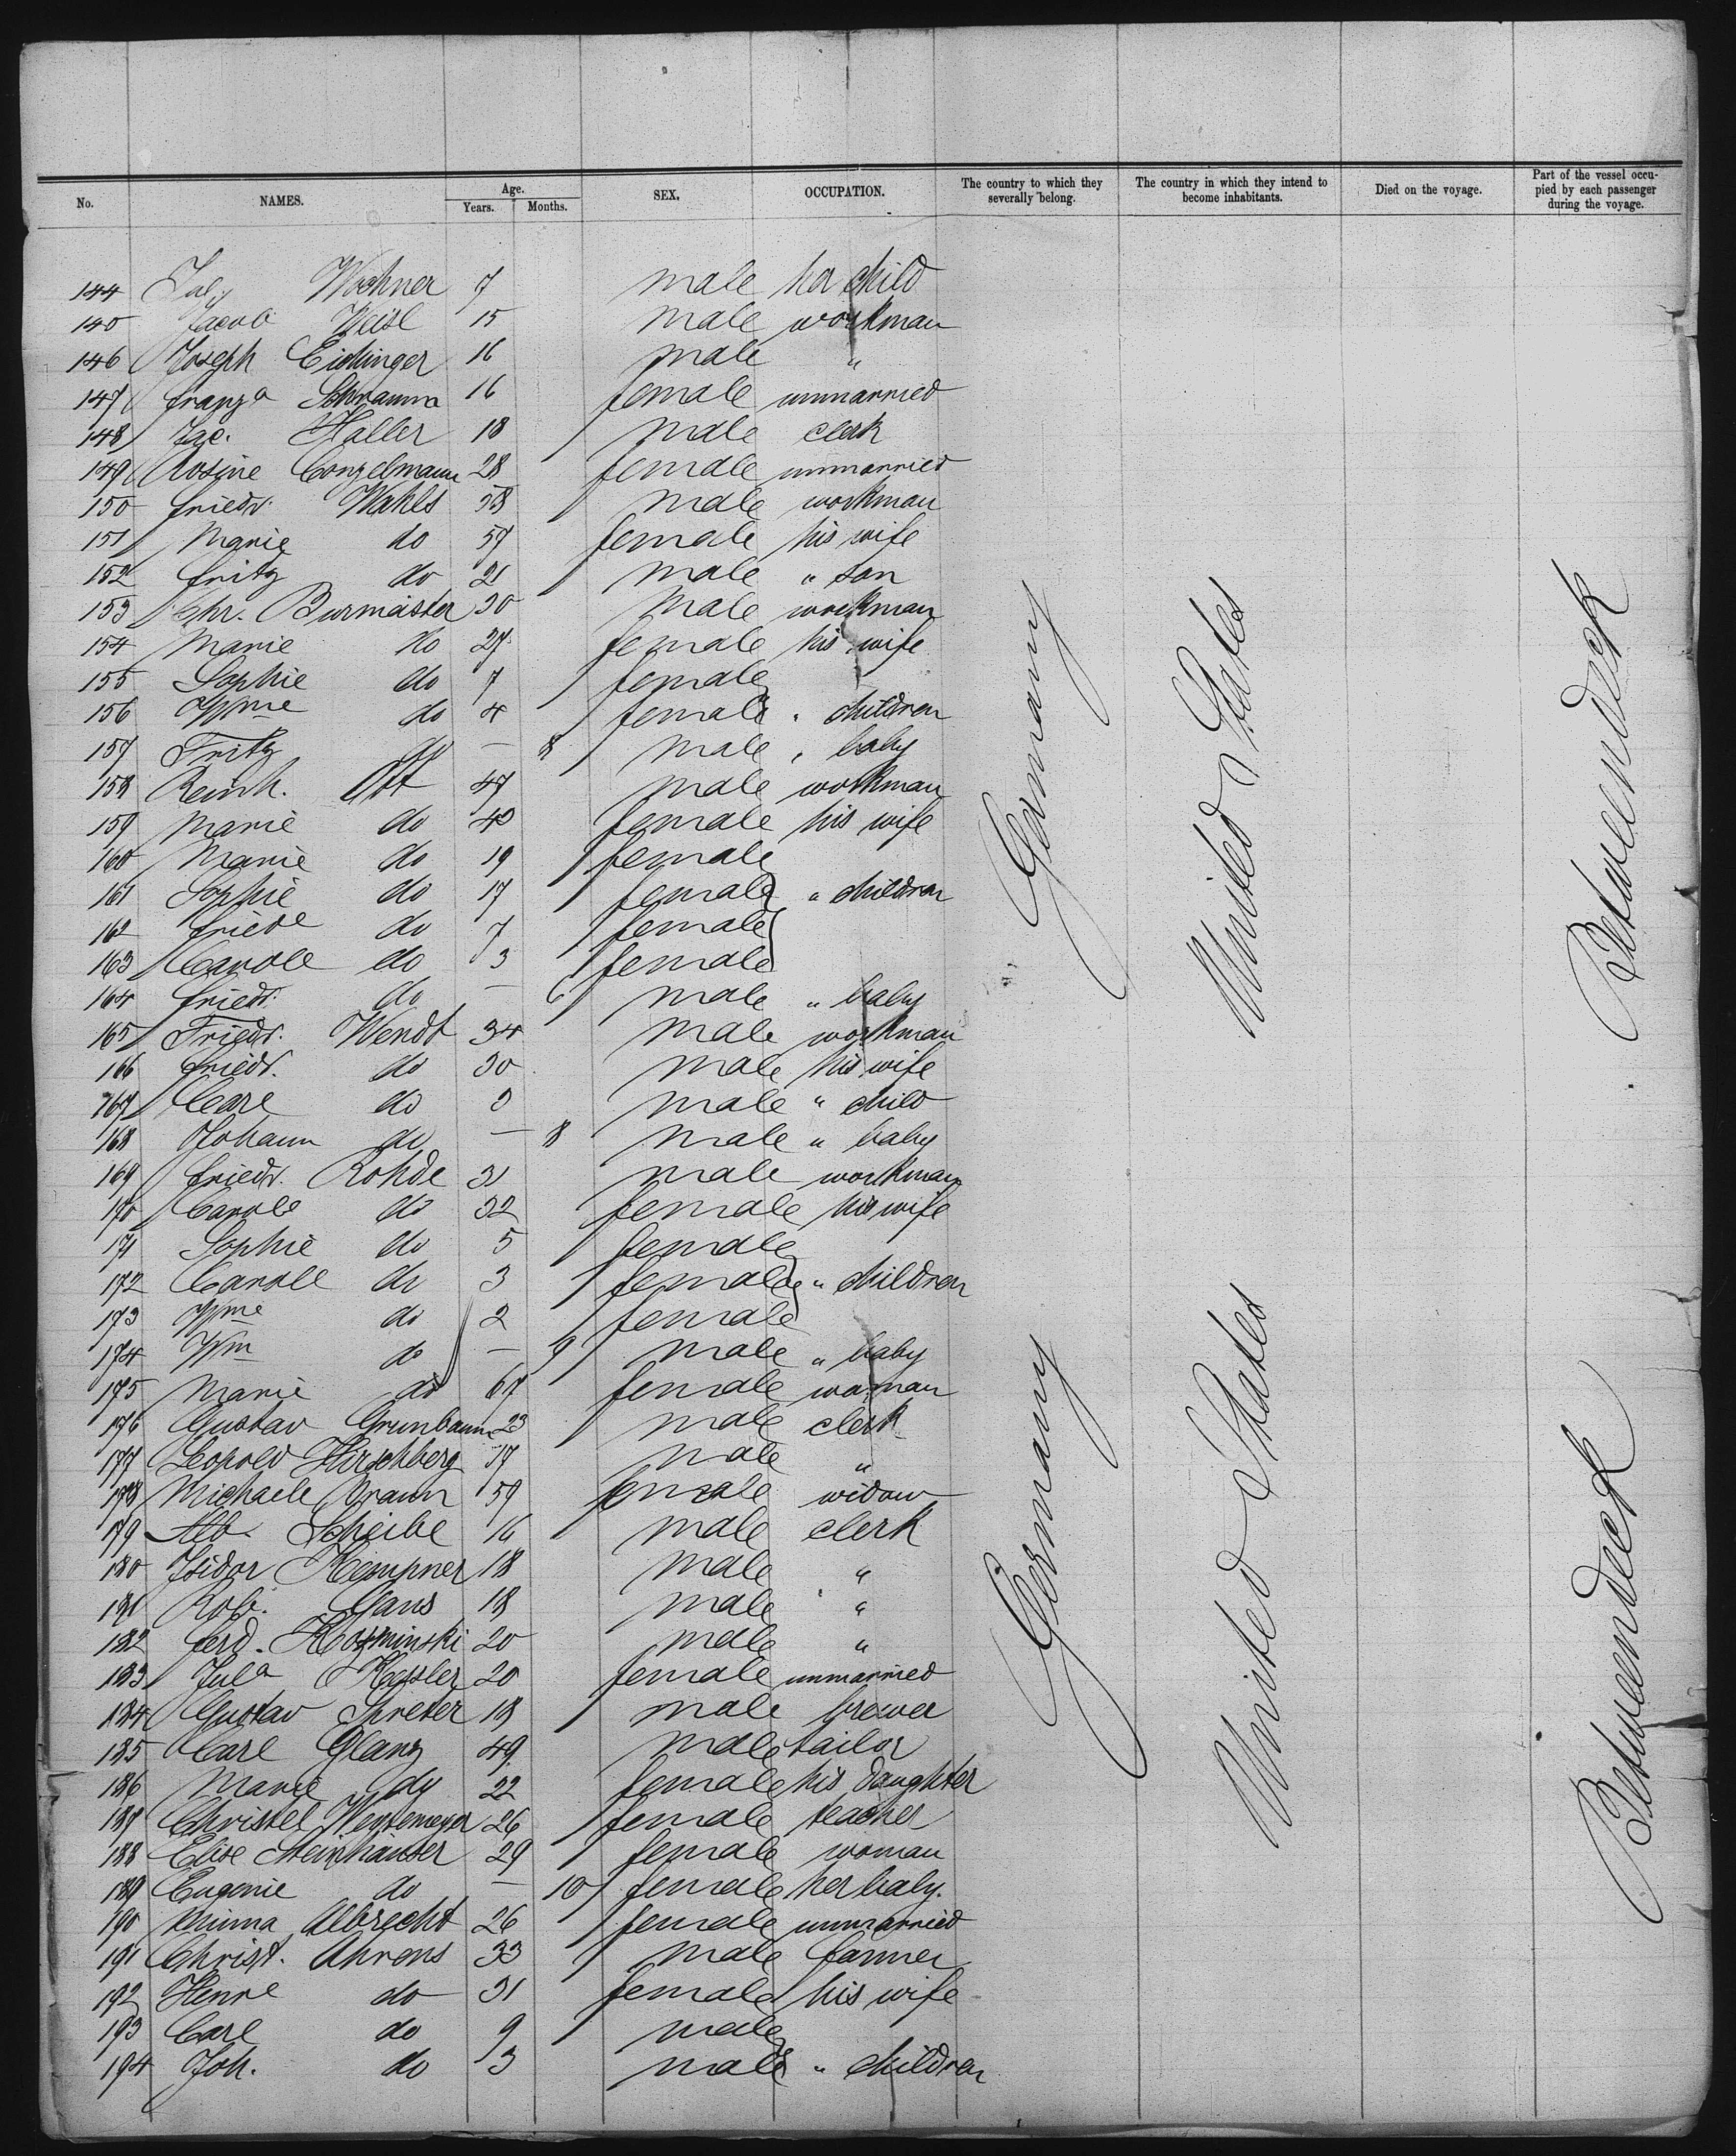 No. NAMES. Age. Years. Months. SEX. OCCUPATION. The country to which they severally belong. The country in which they intend to become inhabitants. Died on the voyage. Part of the vessel occupied by each passenger during the voyage.
144 Wochner 7 male her child
145 Jacob Weisl 15 male workman
146 Joseph Eichinger 16 male "
147 Franz^a Schramm 16 female unmarried
148 Jac. Haller 18 male clerk
149 Rosine Conzelmann 28 female unmarried
150 Friedr. Wahls 58 male workman
151 Marie do 57 female his wife
152 Fritz do 21 male " son
153 Chr. Burmeister 30 male workman
154 Marie do 27 female his wife
155 Sophie do 7 female
156 Wme do 4 female " children
157 Fritz do — 8 male " baby
158 Reinh. Ott 47 male workman
159 Marie do 40 female his wife
160 Marie do 19 female
161 Sophie do 17 female " children
162 Friede do 7 female
163 Carole do 3 female
164 Friedr. do — 6 male " baby
165 Friedr. Wendt 34 male workman
166 Friedr. do 30 male his wife
167 Carl do 3 male " child
168 Johann do — 8 male " baby
169 Friedr. Rohde 31 male workman
170 Carole do 32 female his wife
171 Sophie do 5 female
172 Carole do 3 female " children
173 Wme do 2 female
174 Wm do — 9 male " baby
175 Marie do 67 female woman
176 Gustav Grunbaum 23 male clerk
177 Leopold Hirschberg 17 male "
178 Michaele Braun 59 female widow
179 Alb. Scheibe 16 male clerk
180 Isidor Kempner 18 male "
181 Rob. Gans 18 male "
182 Ferd. Kozminski 20 male "
183 Jul^a Kessler 20 female unmarried
184 Gustav Spreter 18 male brewer
185 Carl Glanz 49 male tailor
186 Marie do 22 female his daughter
187 Christel 26 female teacher
188 Elise Steinhäuser 29 female woman
189 Eugenie do — 10 female her baby.
190 Minna Albrecht 26 female unmarried
191 Christ. Ahrens 33 male farmer
192 Henre do 31 female his wife
193 Carl do 9 male
194 Joh. do 3 male " children
Germany
United States
Betweendeck
Germany
United States
Betweendeck